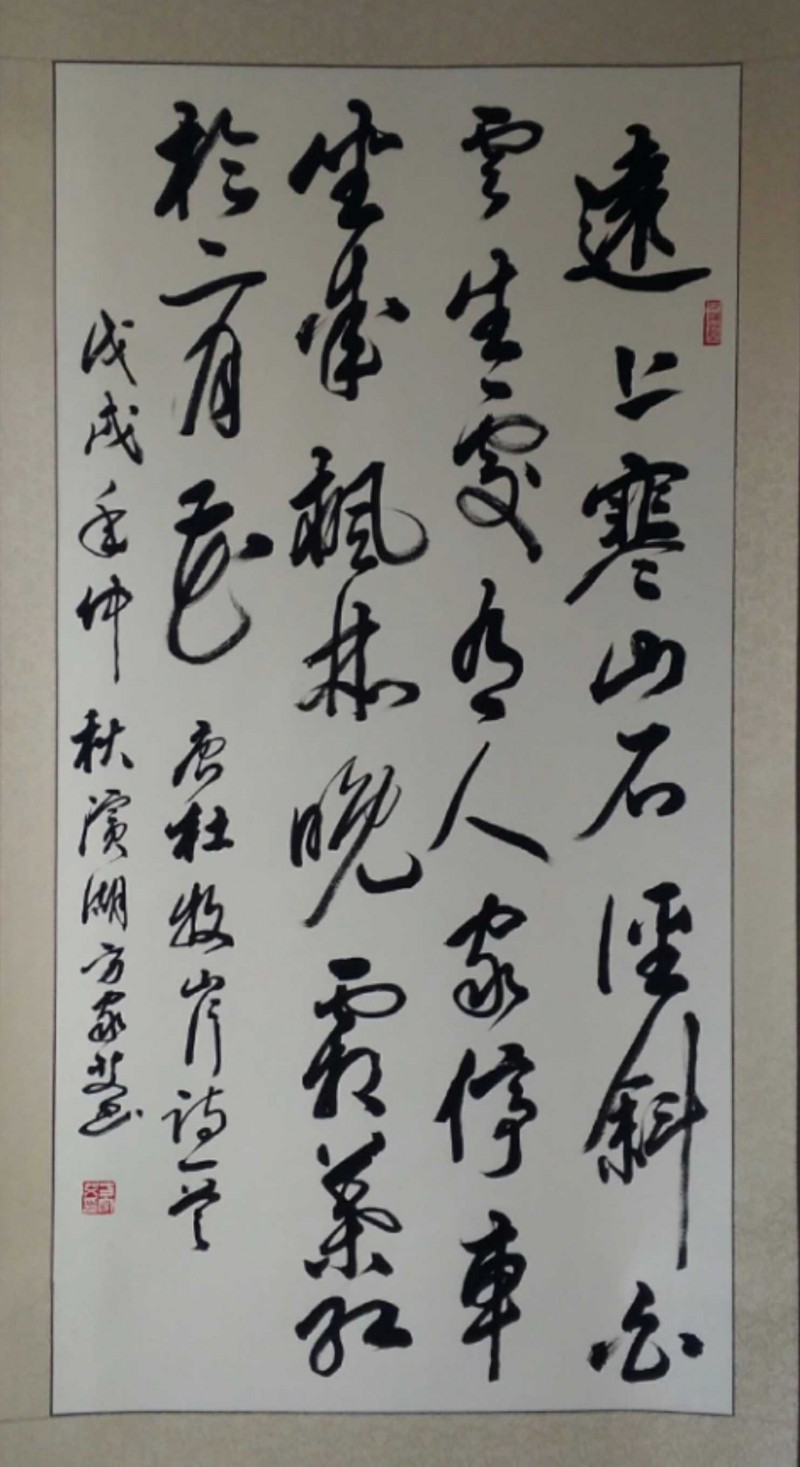 遠上寒山石徑斜白
雲生處有人家停車
坐愛楓林晚霜葉紅
於二月花 唐杜牧山行詩一首
戊戌年仲秋濱湖方家书